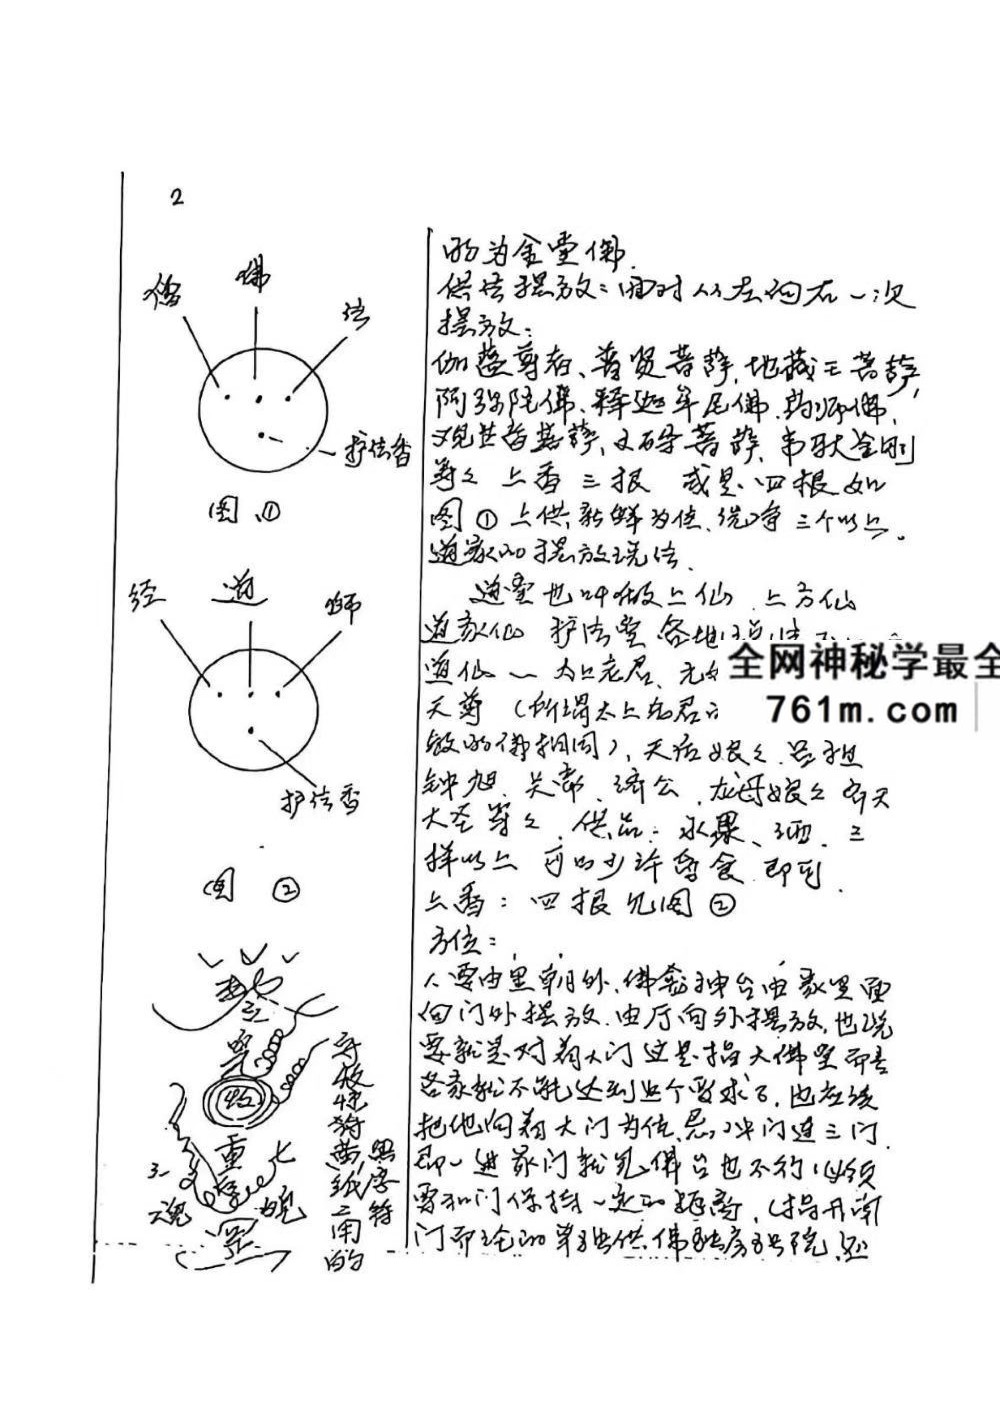 2
僧
佛
法
护法香
图①
经
道
师
护法香
图②
的为金堂佛.
供养摆放：面对从左向右一次
摆放：
伽蓝尊者、普贤菩萨、地藏王菩萨,
阿弥陀佛、释迦牟尼佛、药师佛,
观世音菩萨、文殊菩萨、韦驮金刚
等々 上香三根 或是四根如
图①上供新鲜为佳、洗净三个以上。
道家的摆放说法.
道堂也叫做上仙、上方仙
道家仙 护法堂 各地
道仙一 太上老君、元
天尊（所谓太上老君
教的佛相同）, 天后娘々 吕祖
钟旭、关帝、济公、龙母娘々 齐天
大圣等々 供品：水果、酒、三
样以上 可以少许
即可.
上香：四根见图②
方位：
人要由里朝外、佛
神台由家里面
向门外摆放. 由厅向外摆放, 也说
要就是对着大门这是指大佛堂而言
若家就不能达到这个要求了, 也应该
把他向着大门为佳. 忌：冲门道三门.
即一进家门就见佛台也不行, 必须
要和门保持一定的距离,（指开南
门而论的单独供佛
收
重
七
三
魂
魄
罡
黄
纸
用
的
黑
字
符
全网神秘学最全
761m.com